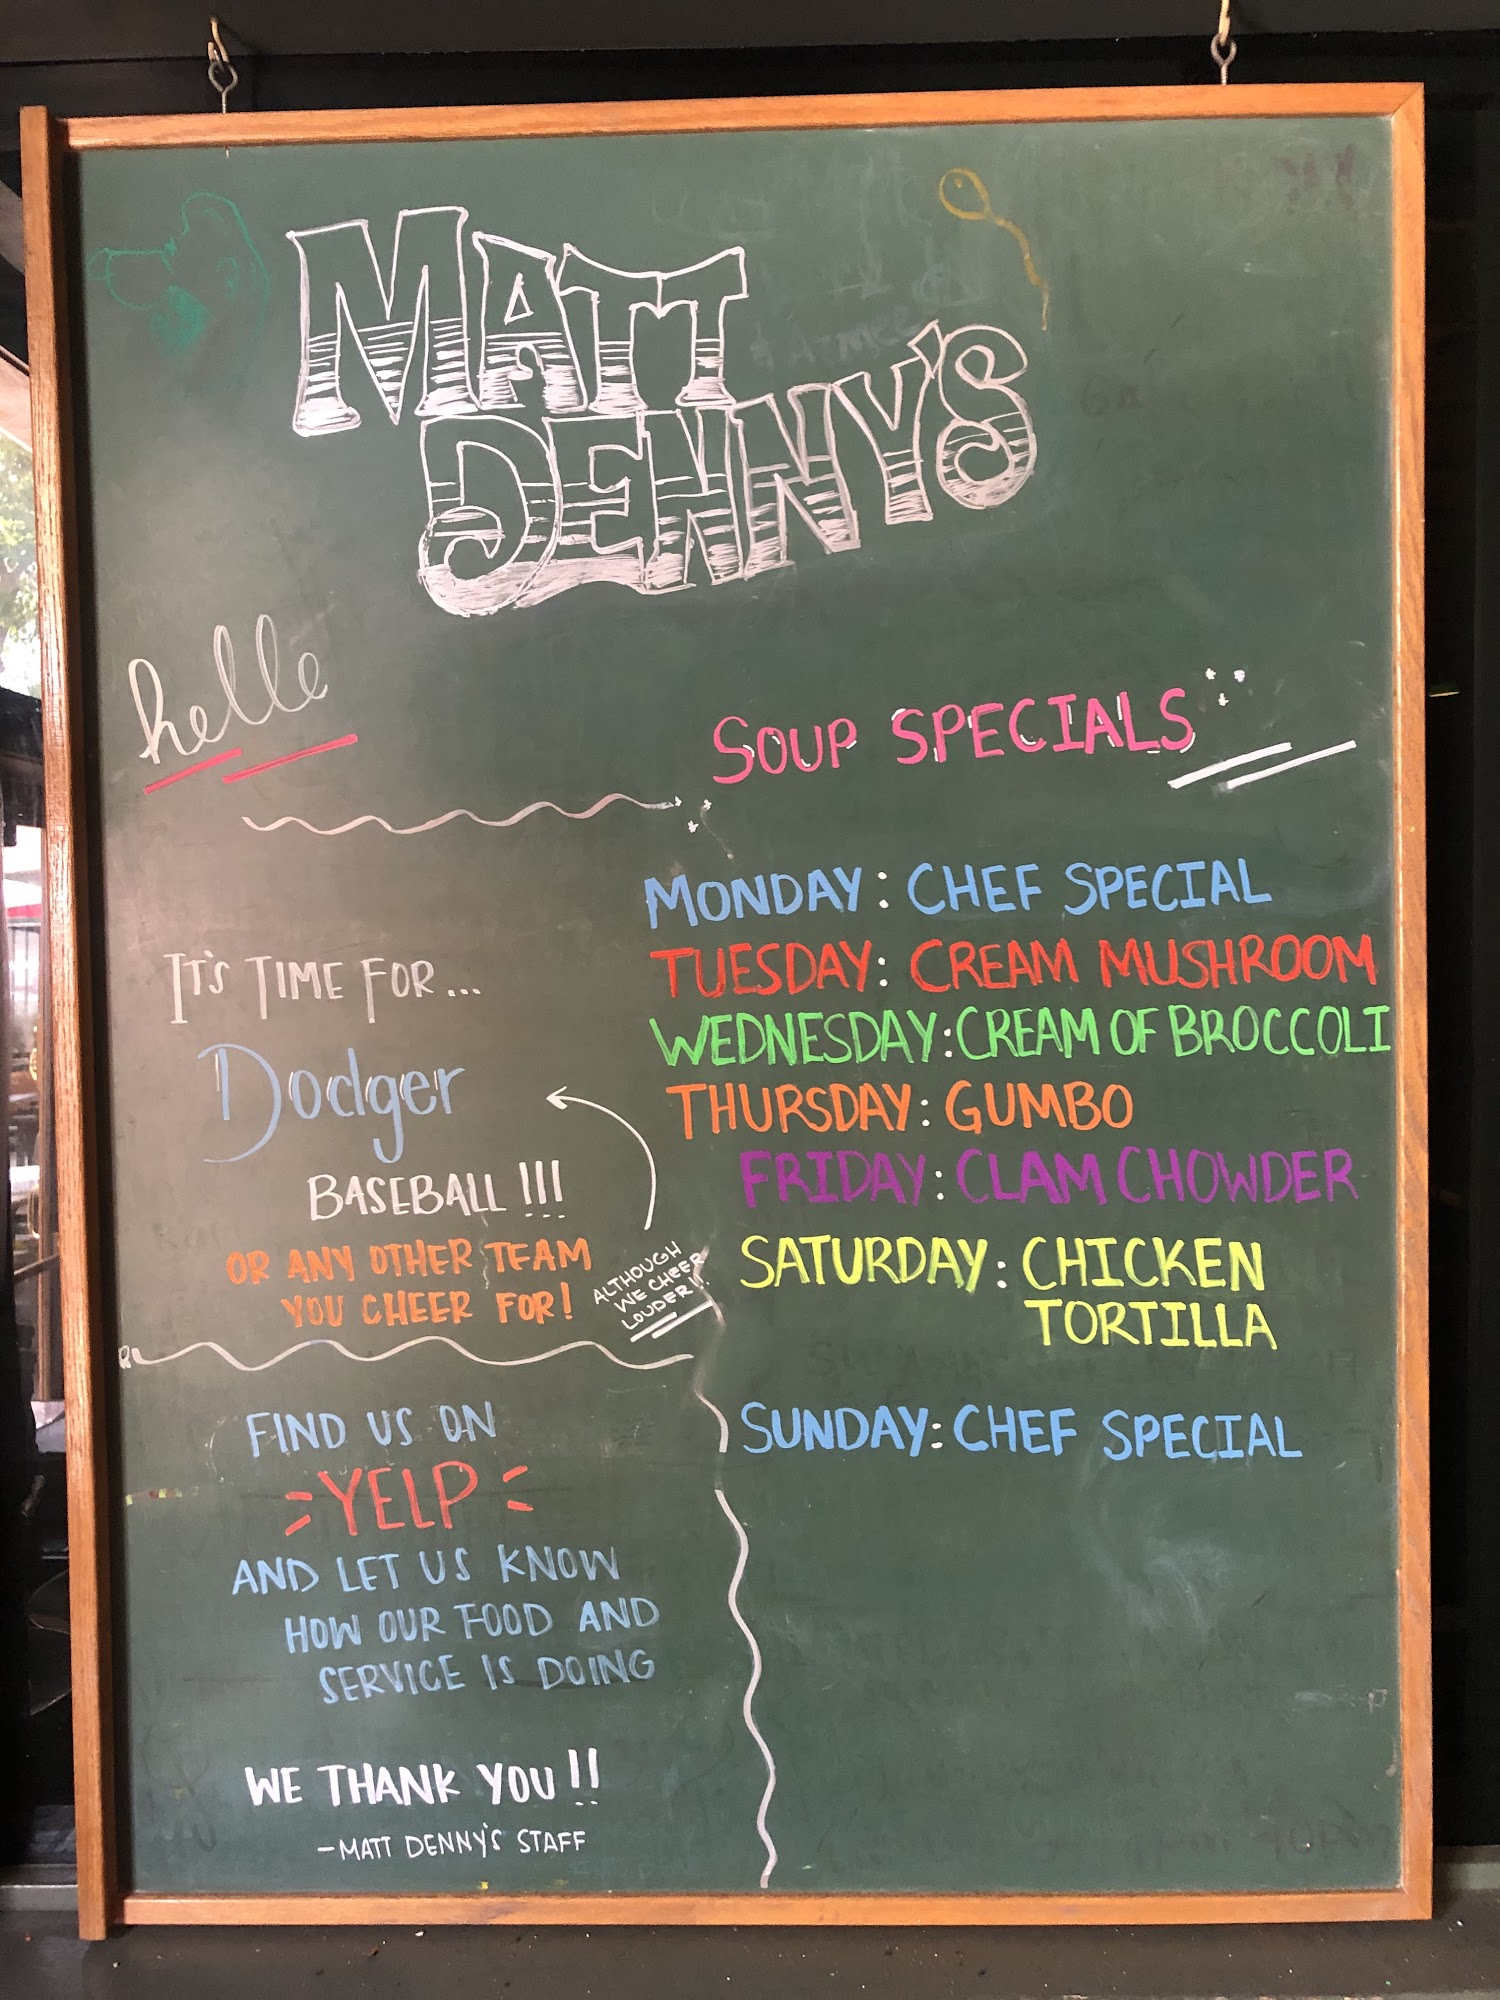 MATT
DENNY'S
hello
IT'S TIME FOR...
Dodger
BASEBALL!!!
OR ANY OTHER TEAM
YOU CHEER FOR!
ALTHOUGH
WE CHEER
LOUDER!!
FIND US ON
YELP
AND LET US KNOW
HOW OUR FOOD AND
SERVICE IS DOING
WE THANK YOU!!
-MATT DENNY'S STAFF
SOUP SPECIALS
MONDAY: CHEF SPECIAL
TUESDAY: CREAM MUSHROOM
WEDNESDAY: CREAM OF BROCCOLI
THURSDAY: GUMBO
FRIDAY: CLAM CHOWDER
SATURDAY: CHICKEN
TORTILLA
SUNDAY: CHEF SPECIAL